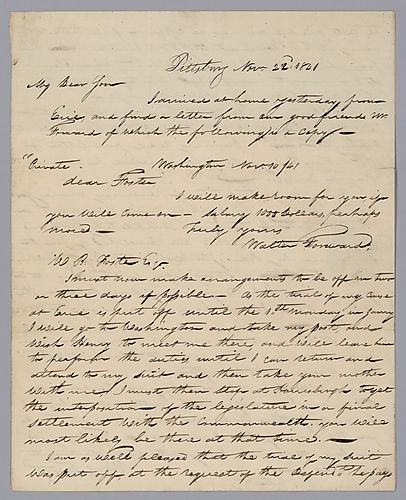 Pittsburg Nov. 22d. 1841
My Dear Son
I arrived at home yesterday from
Erie and find a letter from our good friend W.
Forward of which the following is a Copy—
"Private. Washington Nov. 10/41
dear Foster
I will make room for you if
you will come on — Salary 1000 Dollars, perhaps
more — Truly yours
Walter Forward.
W B. Foster Esq.
I must now make arrangements to be off in two
or three days if possible — As the trial of my Case
at Erie is put off until the 1st Monday in Jany
I will go to Washington and take my post, and
wish Henry to meet me there, and will leave him
to perform the duties until I can return and
attend to my suit and then take your mother
with me. I must then stop at Harrisburgh to get
the interposition of the legislature in a final
settlement with the Commonwealth. you will
most likely be there at that time. —
I am as well pleased that the trial of my suit
was put off at the request of the he pays